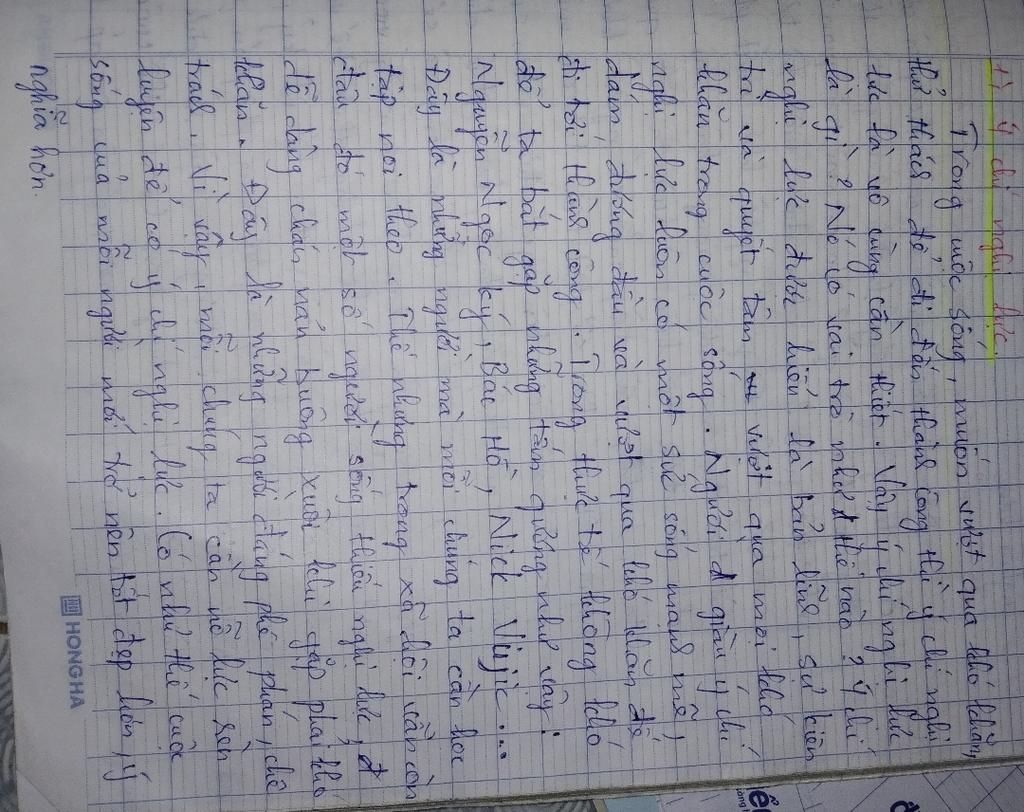 1) Ý chí nghị lực.
Trong cuộc sống, muốn vượt qua khó khăn,
thử thách để đi đến thành công thì ý chí nghị
lực là vô cùng cần thiết. Vậy ý chí nghị lực
là gì? Nó có vai trò như thế nào? Ý chí
nghị lực được hiểu là bản lĩnh, sự kiên
trì và quyết tâm vượt qua mọi khó
khăn trong cuộc sống. Người giàu ý chí
nghị lực luôn có một sức sống mạnh mẽ,
dám đương đầu và vượt qua khó khăn để
đi tới thành công. Trong thực tế không khó
để ta bắt gặp những tấm gương như vậy:
Nguyễn Ngọc Ký, Bác Hồ, Nick Vujic...
Đây là những người mà mỗi chúng ta cần học
tập noi theo. Thế nhưng trong xã hội vẫn còn
đâu đó một số người sống thiếu nghị lực,
dễ dàng chán nản buông xuôi khi gặp phải khó
khăn. Đây là những người đáng phê phán, chê
trách. Vì vậy, mỗi chúng ta cần nỗ lực rèn
luyện để có ý chí nghị lực. Có như thế cuộc
sống của mỗi người mới trở nên tốt đẹp hơn, ý
nghĩa hơn.
HONG HA